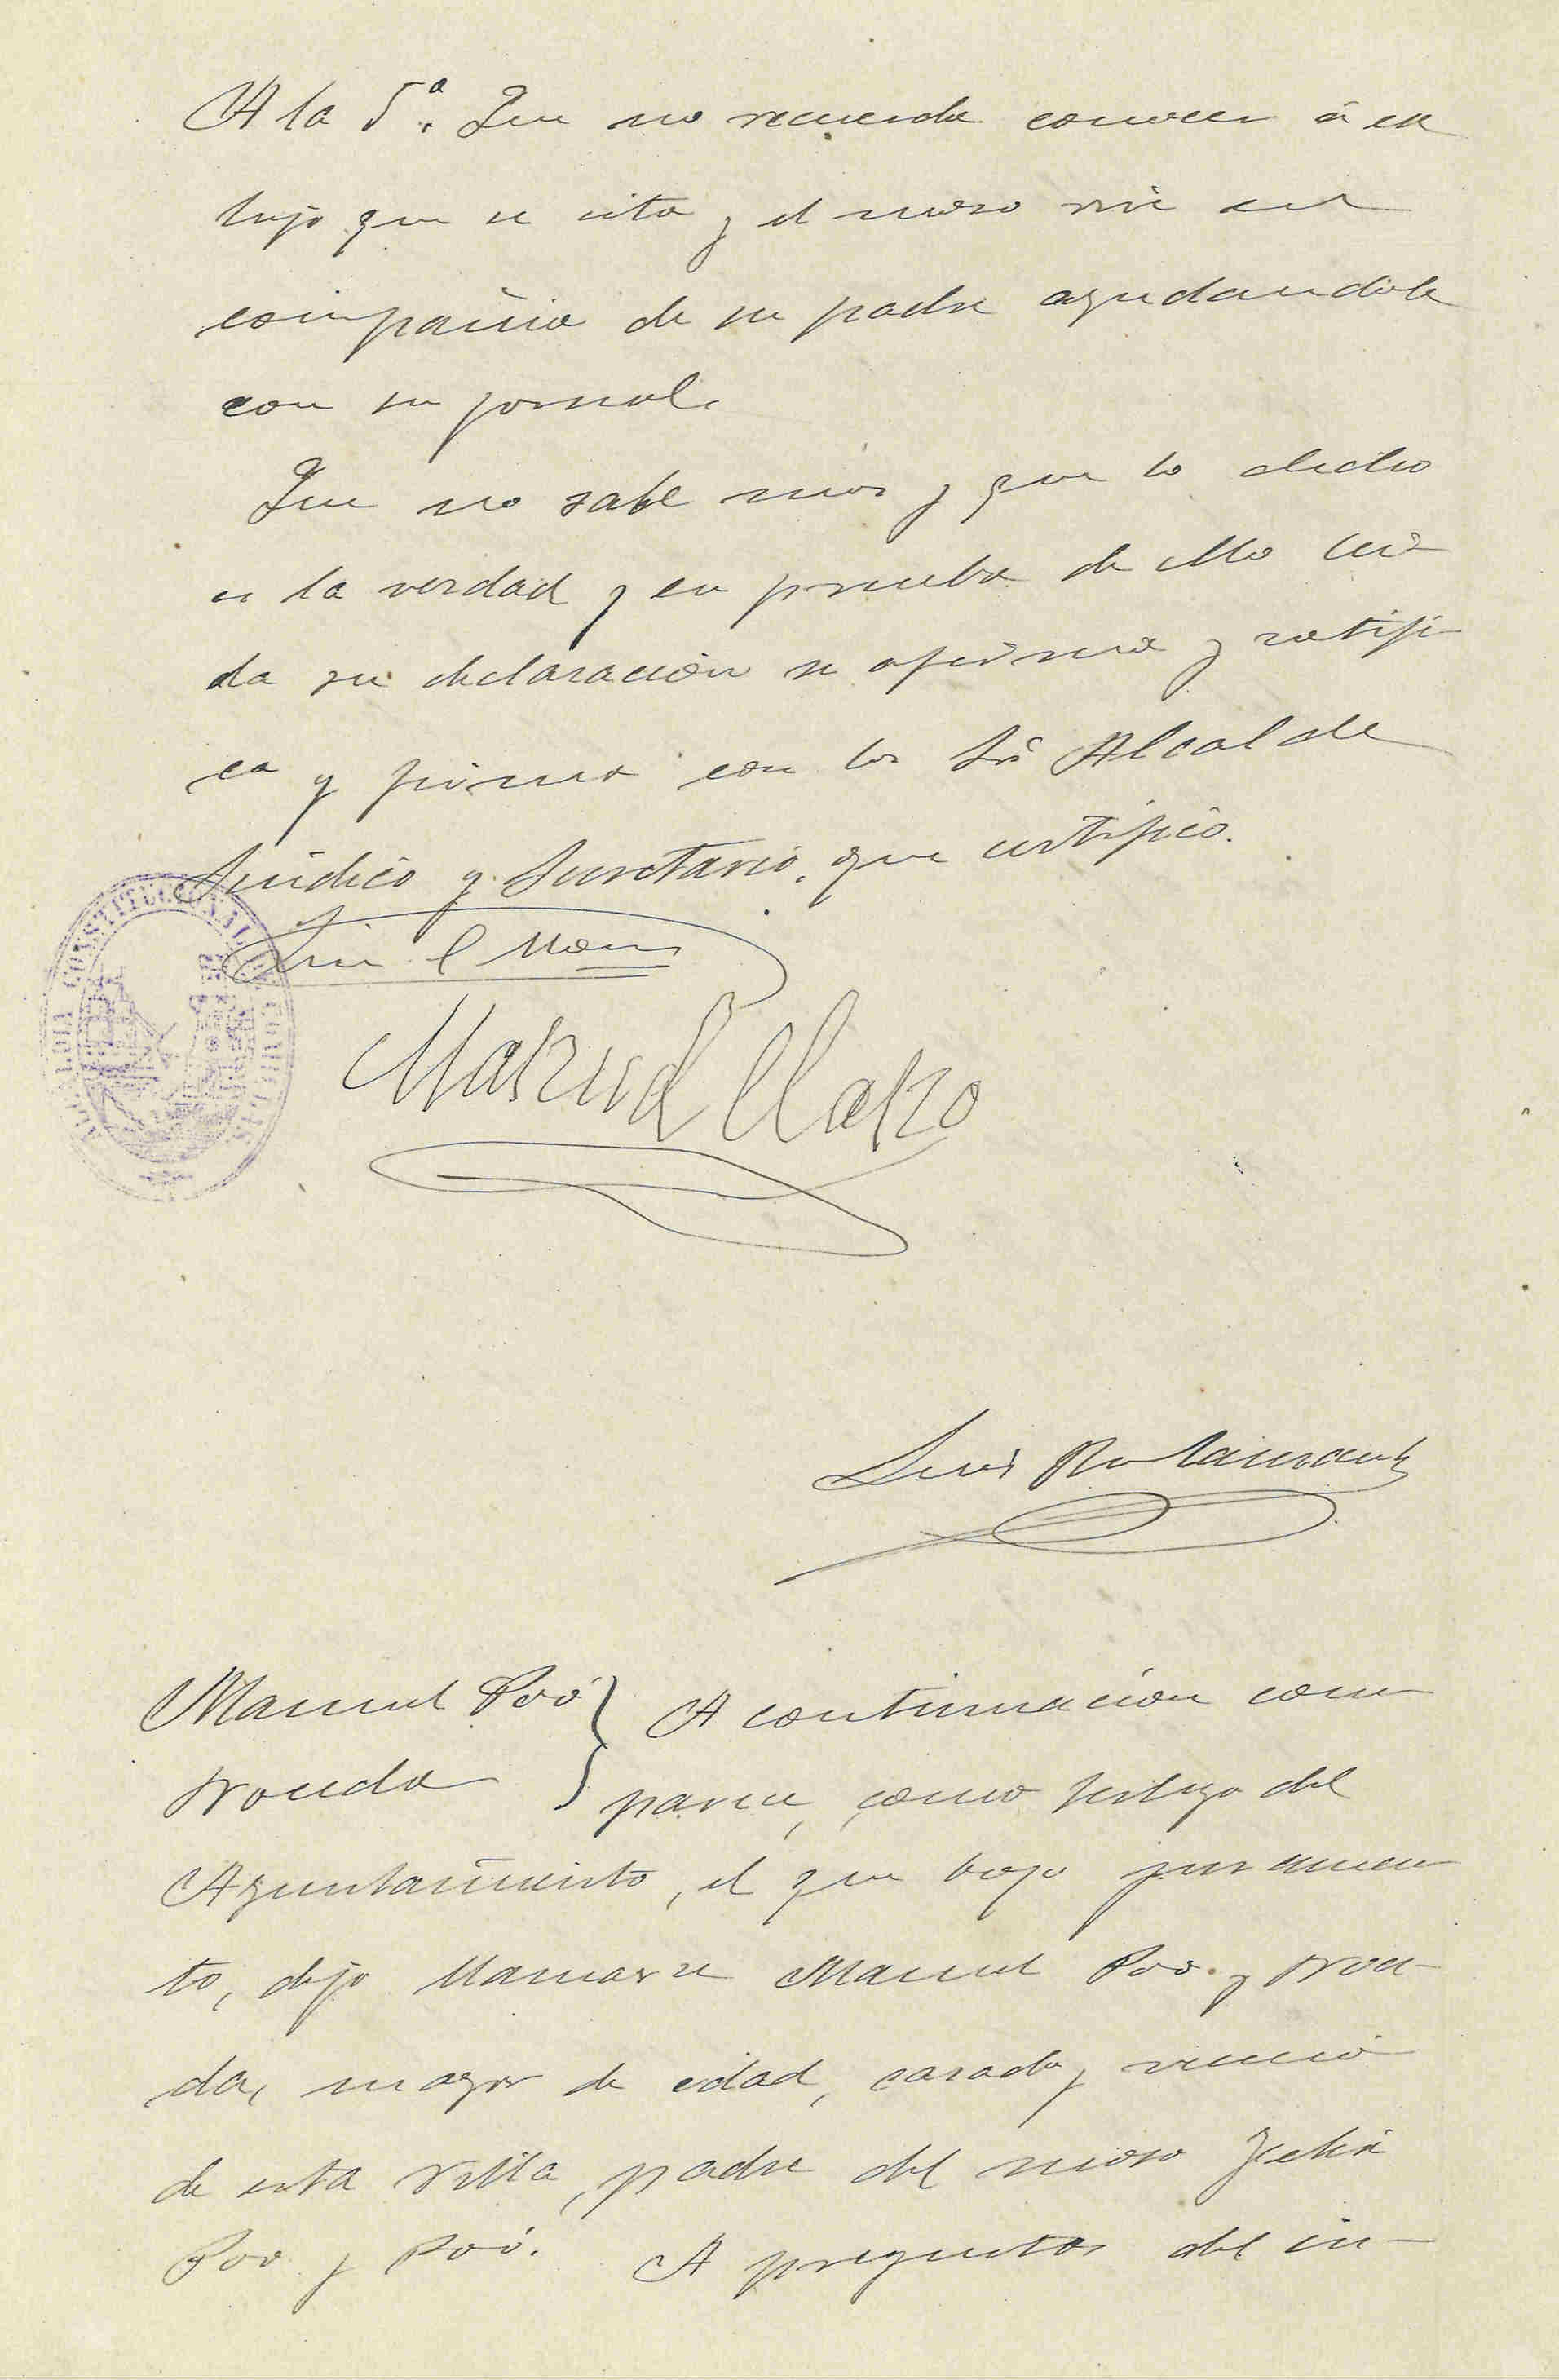 A la 5ª. Que no recuerda conocer á ese
hijo que se cita y el mozo vive en
compañia de su padre ayudandole
con su jornal.
Que no sabe mas y que lo dicho
es la verdad y en prueba de ello lei-
da su declaración se afirma y ratifi-
ca y firma con los Sr Alcalde
Sindico y Secretario, que certifico.
ALCALDIA CONSTITUCIONAL DE COMILLAS
Manuel
Luis Bustamante
Manuel Poó
Tronda
A continuación com-
parece, como testigo del
Ayuntamiento, el que bajo juramen-
to, dijo llamarse Manuel Poo y Tron-
da, mayor de edad, casado y vecino
de esta Villa, padre del mozo Felix
Poo y Poó. A preguntas del in-